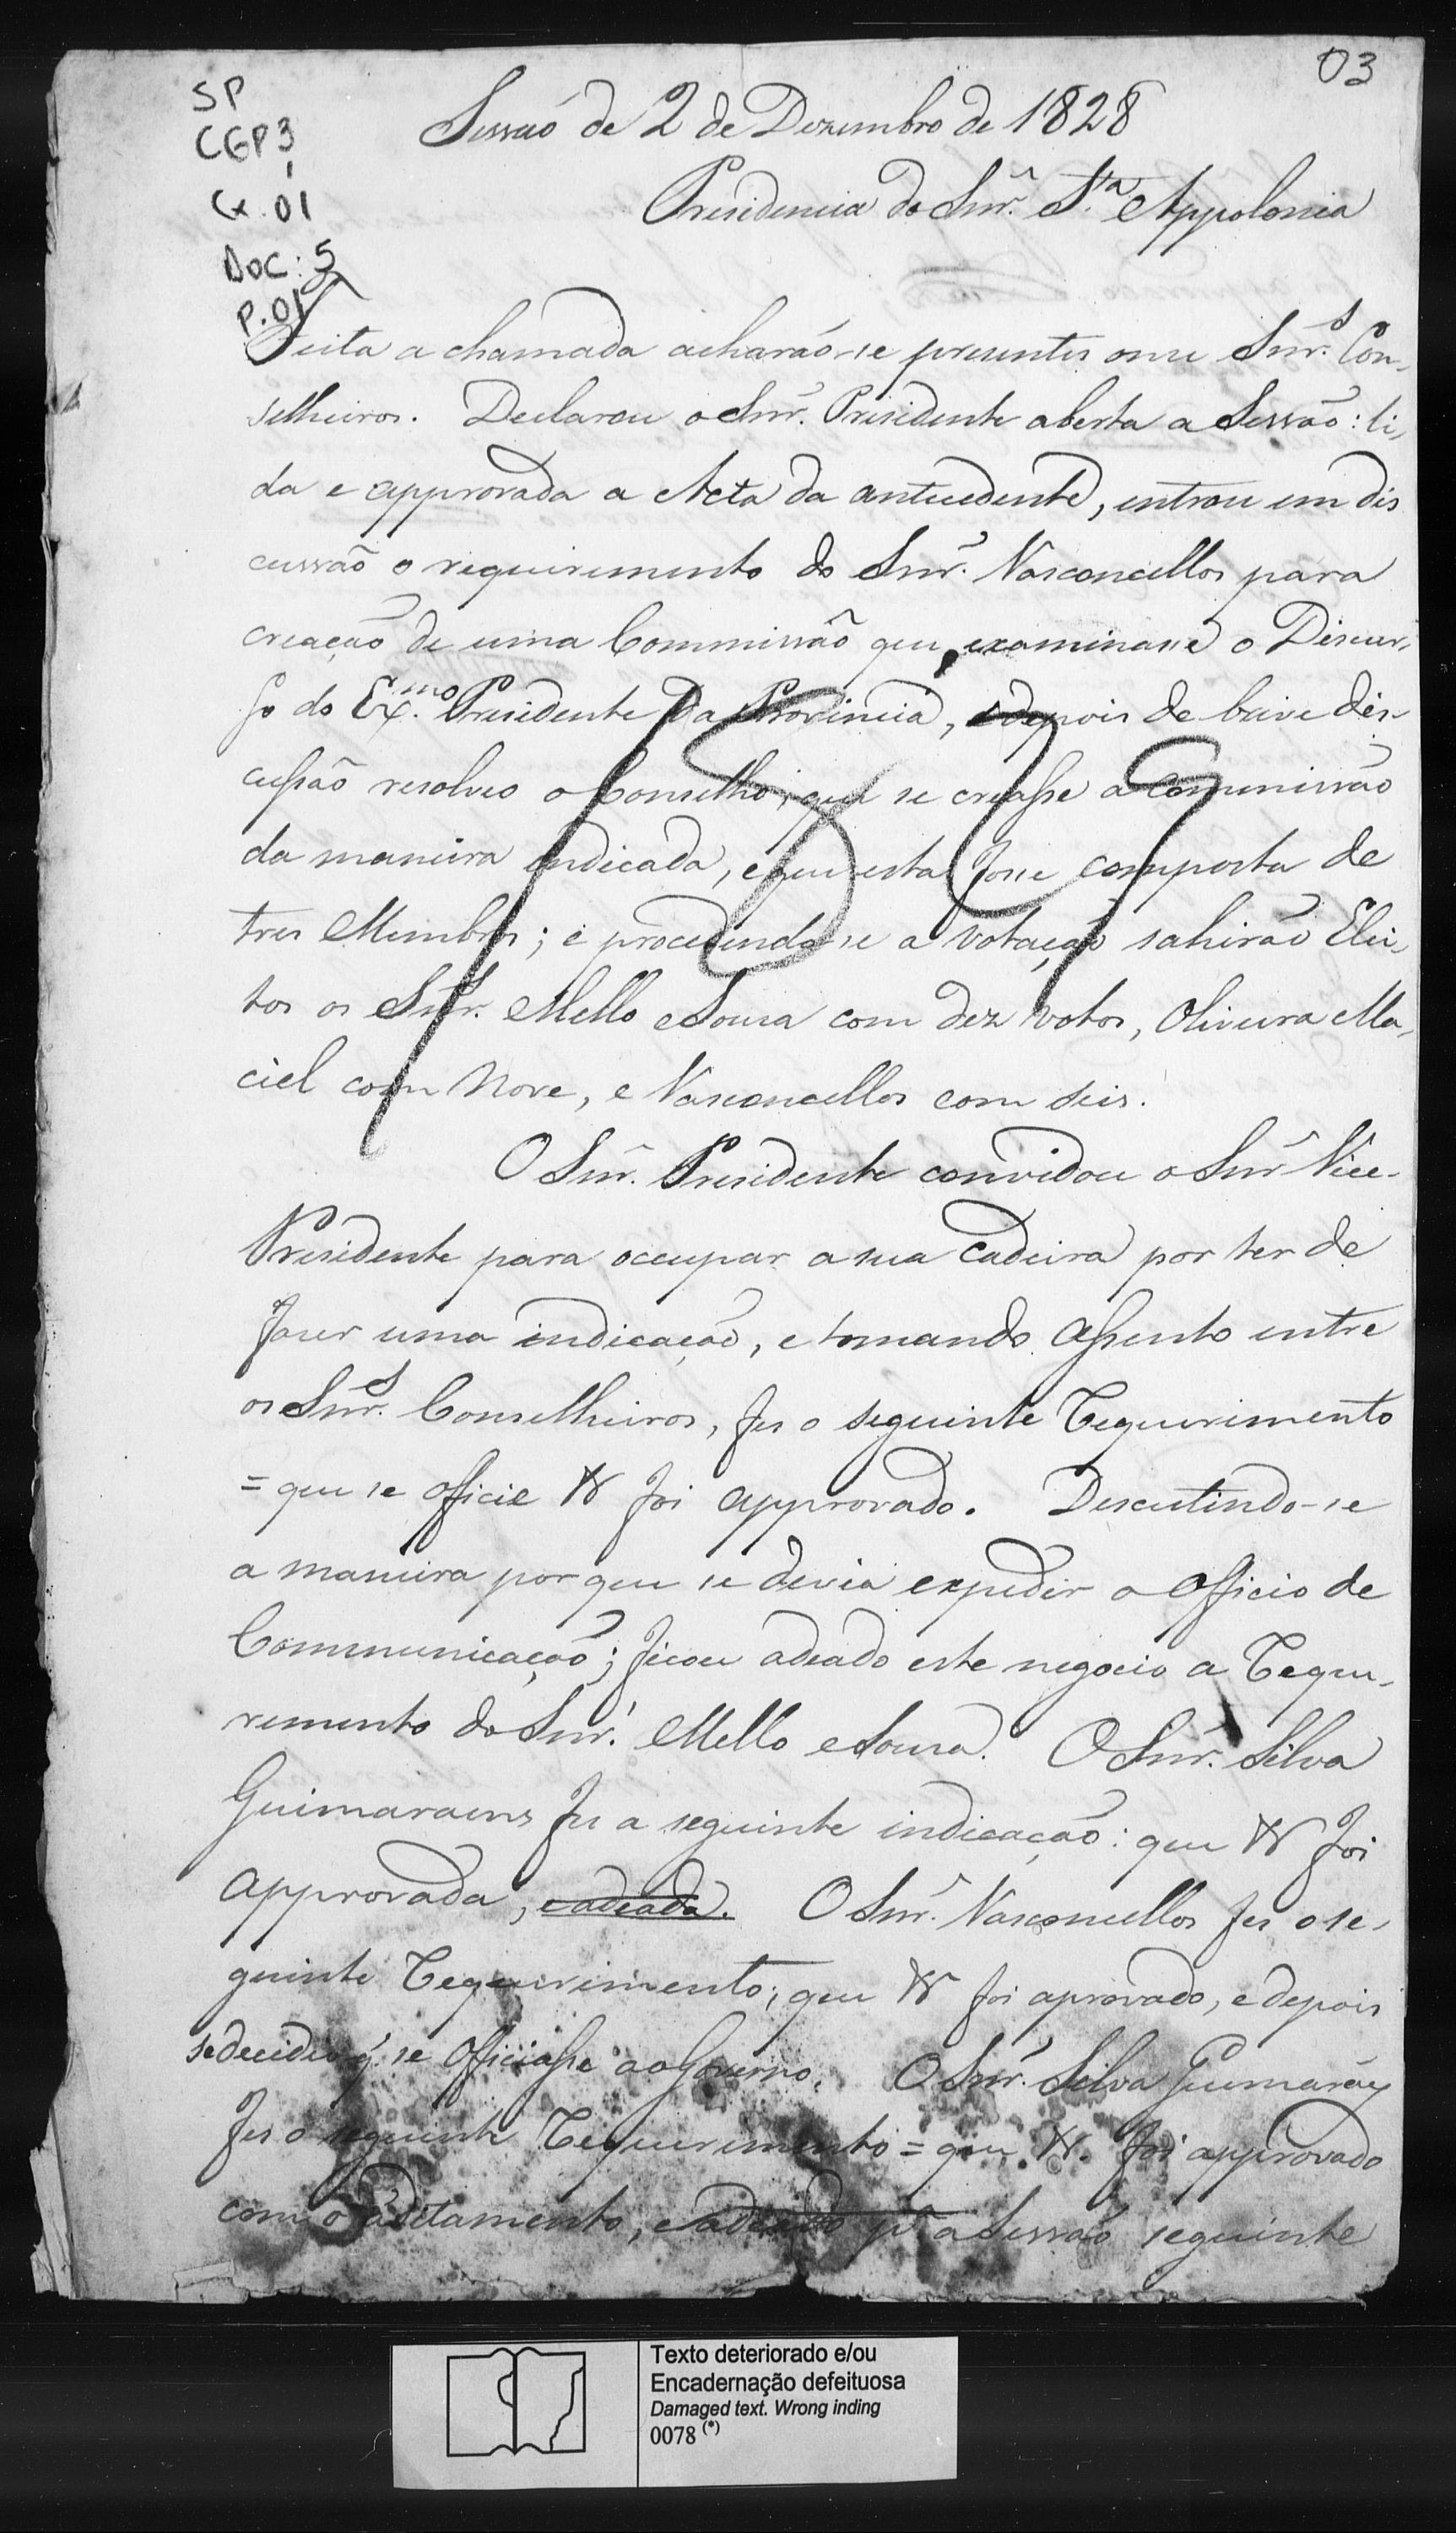 03
SP
CGP3
Cx. 01
Doc: 5
P. 01
Sessaõ de 2 de Dezembro de 1828
Presidencia do Snr. Sta Appolonia
Feita a chamada acharaõ-se presentes onze Snr.s Con-
selheiros. Declarou o Snr. Presidente aberta a Sessaõ: li-
da e approvada a Acta da antecedente, entrou em dis
cussaõ o requirimento do Snr. Vasconcellos para
creaçaõ de uma Commissaõ que examinasse o Discur-
so do Ex.mo Presidente da Provincia, depois de breve dis-
cussaõ resolveo o Conselho, que se creasse a Commissaõ
da maneira indicada, e que esta fosse composta de
tres Membros; e procedendo-se a votaçaõ sahiraõ Elei-
tos os Snr.s Mello e Souza com dez votos, Oliveira Ma-
ciel com nove, e Vasconcellos com seis.
O Snr. Presidente convidou o Snr Vice-
Presidente para occupar a sua Cadeira por ter de
fazer uma indicaçaõ, e tomando assento entre
os Snr.s Conselheiros, fez o seguinte Requerimento
= que se officie foi approvado. Descutindo-se
a maneira por que se devia expedir o Officio de
Communicaçaõ; ficou adeado este negocio a Reque-
remento do Snr. Mello e Souza. O Snr. Silva
Guimaraens fez a seguinte indicaçaõ: que foi
approvada, e adeada. O Snr. Vasconcellos fez o se-
guinte Requerimento; que foi aprovado, e depois
se decidio q̃ se Officiasse ao Governo. O Snr. Silva Guimarães
fez o seguinte Requerimento = que foi approvado
com o aditamento, e adeado pª a Sessaõ seguinte
Texto deteriorado e/ou
Encadernação defeituosa
Damaged text. Wrong inding
0078 (*)